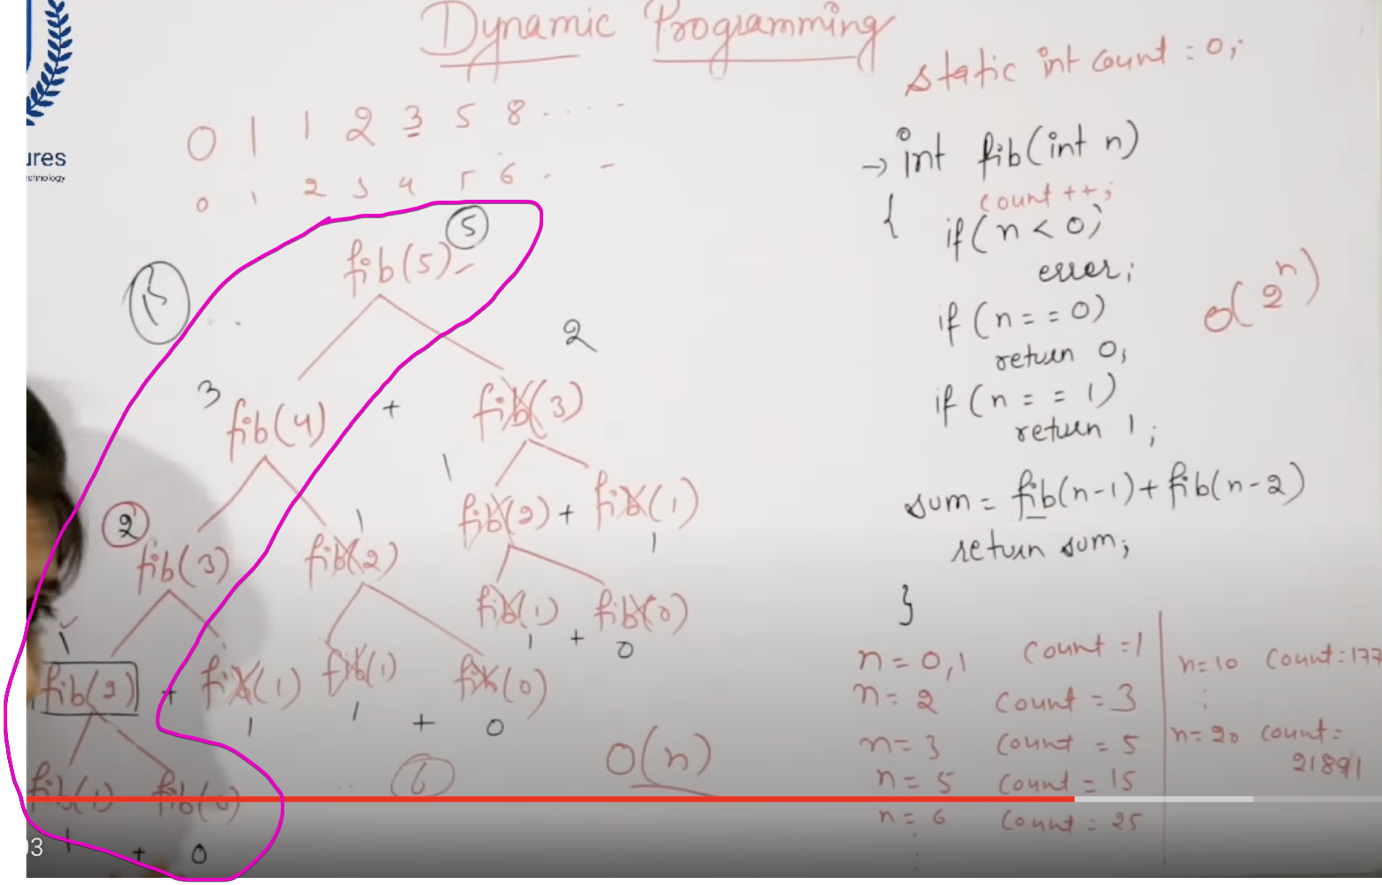 Dynamic Programming
0 1 1 2 3 5 8 ....
0 1 2 3 4 5 6 . -
ures
fib(5) 5
15
3 2
fib(4) + fib(3)
1
2 1 fib(2) + fib(1)
1
fib(3) fib(2)
fib(1) + fib(0)
1 0
1
fib(2) + fib(1) fib(1) fib(0)
1 1 + 0
6 O(n)
fib(1) fib(0)
1 + 0
03
static int count = 0;
→ int fib(int n)
{ count ++;
if(n < 0)
error;
if (n = = 0)
return 0;
if (n = = 1)
return 1;
sum = fib(n-1) + fib(n-2)
return sum;
}
O(2^n)
n = 0,1 count = 1
n = 2 count = 3
n = 3 count = 5
n = 5 count = 15
n = 6 count = 25
:
n = 10 count : 177
:
n = 20 count =
21891